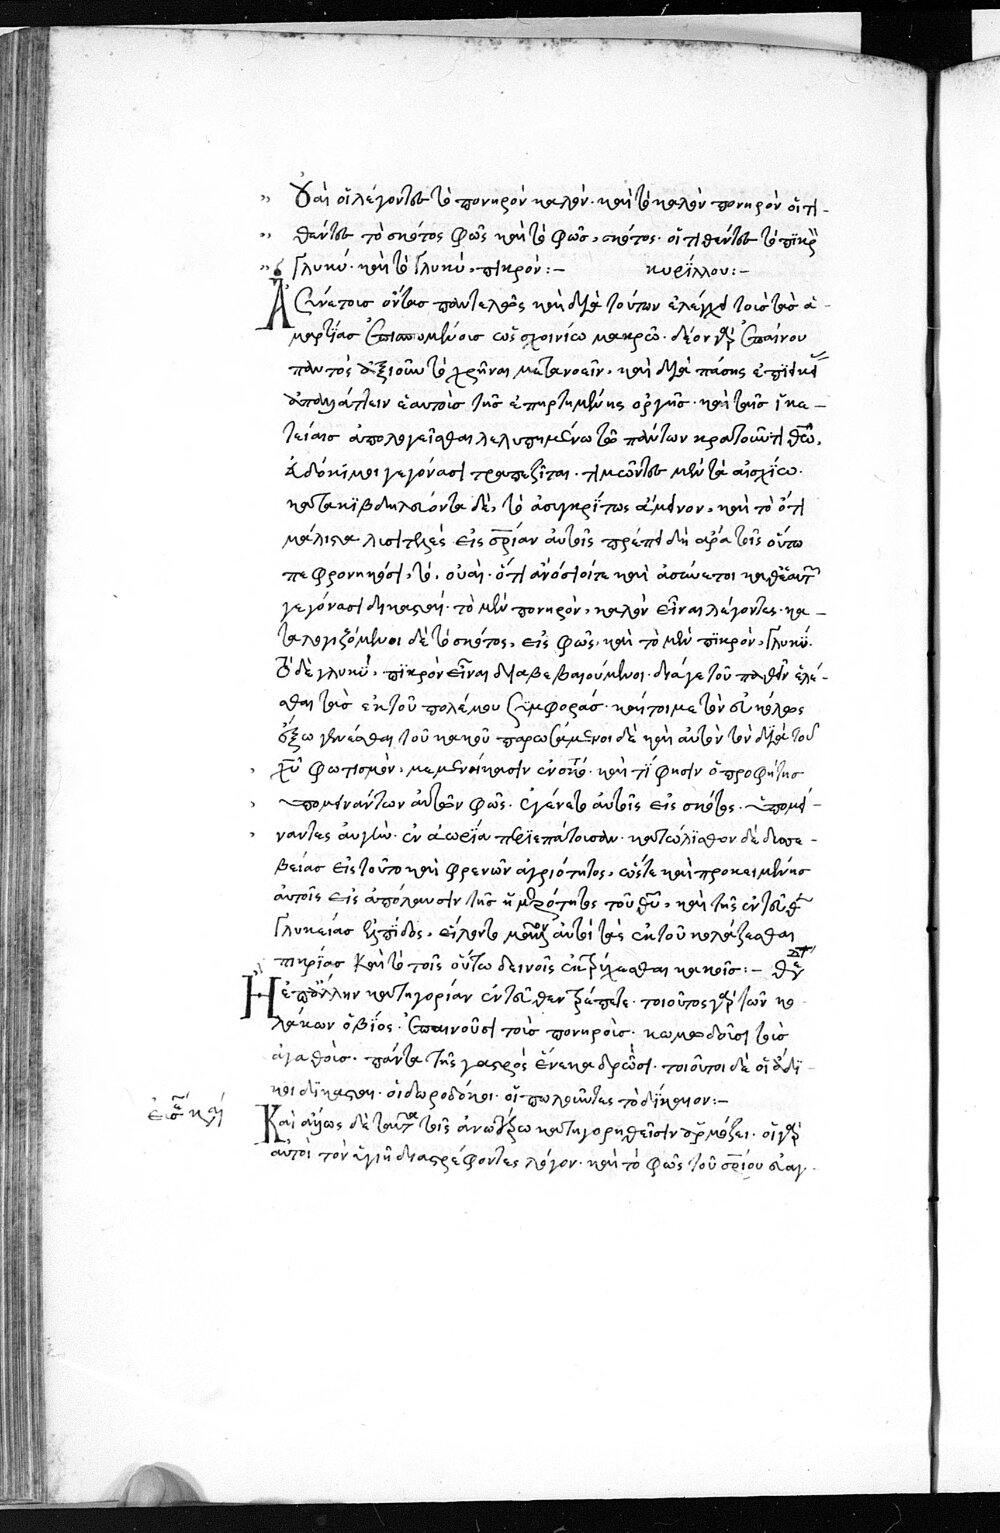 Οὐαὶ οἱ λέγοντες τὸ πονηρὸν καλὸν· καὶ τὸ καλὸν πονηρὸν οἱ τι-
θέντες τὸ σκότος φῶς καὶ τὸ φῶς, σκότος· οἱ τιθέντες τὸ πϊκρὸν
γλυκύ· καὶ τὸ γλυκύ, πικρόν:– κυρίλλου:–
Ἀσυνέτοις ὄντας παντελῶς καὶ διὰ τούτων ἐλέγχει τοῖς τὰς ἁ-
μαρτίας ἐπισπωμένοις ὡς σχοινίω μακρῶ· δέον γὰρ ἐπαίνου
παντὸς ἀξιοῦν τὸ χρῆναι μετανοεῖν, καὶ διὰ πάσης ἐπιεικείας
ἀπαλλάττειν ἑαυτοὺς τῆς ἐπηρτημένης ὀργῆς· καὶ ταῖς ἱκε-
τείαις ἀπολογεῖσθαι λελυπημένω τῶ πάντων κρατοῦντι θεῶ,
ἀδόκιμοι γεγόνασι τραπεζῖται· τιμῶντες μὲν τὰ αἰσχίω·
κατακϊβδηλεύοντα δὲ, τὸ ἀσυγκρίτως ἄμεινον, καὶ τὸ ὅτι
μάλιστα λυσιτελὲς εἰς σωτηρίαν αὐτοῖς πρέπει δὴ ἄρα τοῖς οὕτω
πεφρονηκόσι, τὸ, οὐαὶ· ὅτι ἀνόσιοί τε καὶ ἀσύνετοι καθ' ἑαυτῶν
γεγόνασι δικασταί· τὸ μὲν πονηρὸν, καλὸν εἶναι λέγοντες· κα-
ταλογιζόμενοι δὲ τὸ σκότος, εἰς φῶς, καὶ τὸ μὲν πϊκρὸν, γλυκύ·
τὸ δὲ γλυκὺ, πϊκρὸν εἶναι διαβεβαιούμενοι· διά γε τοῦ παθεῖν ἑλέ-
σθαι τὰς ἐκ τοῦ πολέμου συμφοράς· καίτοι μετὸν εὐκόλως
ἔξω γενέσθαι τοῦ κακοῦ παρωσάμενοι δὲ καὶ αὐτὸν τὸν διὰ τοῦ
χυ φωτισμὸν, μεμενήκασιν ἐν σκότω· καὶ τί φησιν ὁ προφήτης
ὑπομεινάντων αὐτῶν φῶς· ἐγένετο αὐτοῖς εἰς σκότος· ὑπομεί-
ναντες αὐγὴν· ἐν ἀωρίᾳ περιεπάτησαν· κατώλισθον δὲ δυσσε-
βείας εἰς τοῦτο καὶ φρενῶν ἀγριότητος, ὥστε καὶ προκειμένης
αὐτοῖς εἰς ἀπόλαυσιν τῆς ἡμερότητος τοῦ θυ, καὶ τῆς ἐντεῦθεν
γλυκείας ἐλπίδος, εἵλοντο μᾶλλον αὐτοὶ τὰς ἐκ τοῦ κολάζεσθαι
πικρίας καὶ τὸ τοῖς οὕτω δεινοῖς ἐκτρύχεσθαι κακοῖς:–
Ἡ ἐπ' ἄλλην κατηγορίαν ἐντεῦθεν τρέπεται· τοιοῦτος γὰρ τῶν κο-
λάκων ὁ βίος· ἐπαινοῦσι τοὺς πονηροὺς· κωμωδοῦσι τοὺς
ἀγαθοὺς· πάντα τῆς γαστρὸς ἕνεκα δρῶσι· τοιοῦτοι δὲ οἱ ἄδι-
κοι δϊκασταὶ· οἱ δωροδόκοι· οἱ πωλοῦντες τὸ δίκαιον:–
Καὶ ἄλλως δὲ ταῦτα τοῖς ἀνωτέρω κατηγορηθεῖσιν ἁρμόζει· οἱ γὰρ
αὐτοὶ τὸν ὑγιῆ διαστρέφοντες λόγον· καὶ τὸ φῶς τοῦ σωτηρίου εὐαγ-